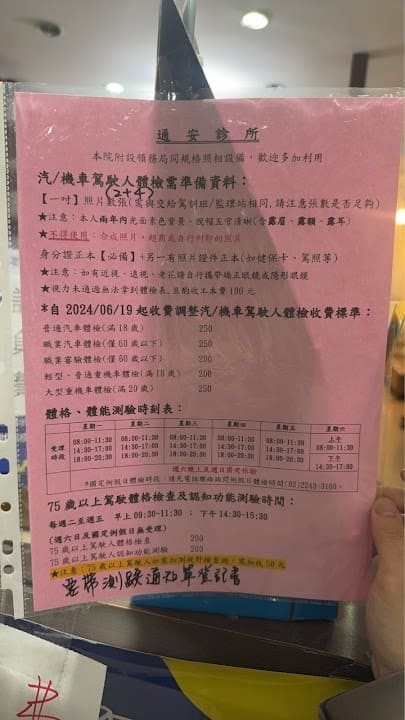 通安診所
本院附設領務局同規格照相設備,歡迎多加利用
汽/機車駕駛人體檢需準備資料:
(2+4)
【一吋】照片數張(需與交給駕訓班/監理站相同,請注意張數是否足夠)
★注意:本人兩年內光面素色背景、脫帽五官清晰(含露眉、露額、露耳)
★不得使用:合成照片、超商或自行列印的照片
身分證正本【必備】+另一有照片證件正本(如健保卡、駕照等)
★注意:如有近視、遠視、老花請自行攜帶矯正眼鏡或隱形眼鏡
★視力未通過無法拿到體檢表,且酌收工本費100元
*自 2024/06/19 起收費調整汽/機車駕駛人體檢收費標準:
普通汽車體檢(滿18歲) 250
職業汽車體檢(僅60歲以下) 250
職業審驗體檢(僅60歲以下) 200
輕型、普通重機車體檢(滿18歲) 200
大型重機車體檢(滿20歲) 250
體格、體能測驗時刻表:
星期一 星期二 星期三 星期四 星期五 星期六
受理時段
08:00-11:30 08:00-11:30 08:00-11:30 08:00-11:30 08:00-11:30 上午 08:00-11:30
14:30-17:00 14:30-17:00 14:30-17:00 14:30-17:00 14:30-17:00 下午
18:00-20:30 18:00-20:30 18:00-20:30 18:00-20:30 18:00-20:30 14:30-17:00
週六晚上及週日國定休診
*國定例假日體檢時段,請先電話聯絡詢問例假日體檢時間(02)2243-3160。
75 歲以上駕駛體格檢查及認知功能測驗時間:
每週二至週五 早上 09:30-11:30 ; 下午 14:30-15:30
(週六日及國定例假日無受理)
75 歲以上駕駛人體格檢查 200
75 歲以上駕駛人認知功能測驗 200
★注意:75歲以上駕駛人如需加測視野檢查測,需加收50元
要帶測驗通知單登記書